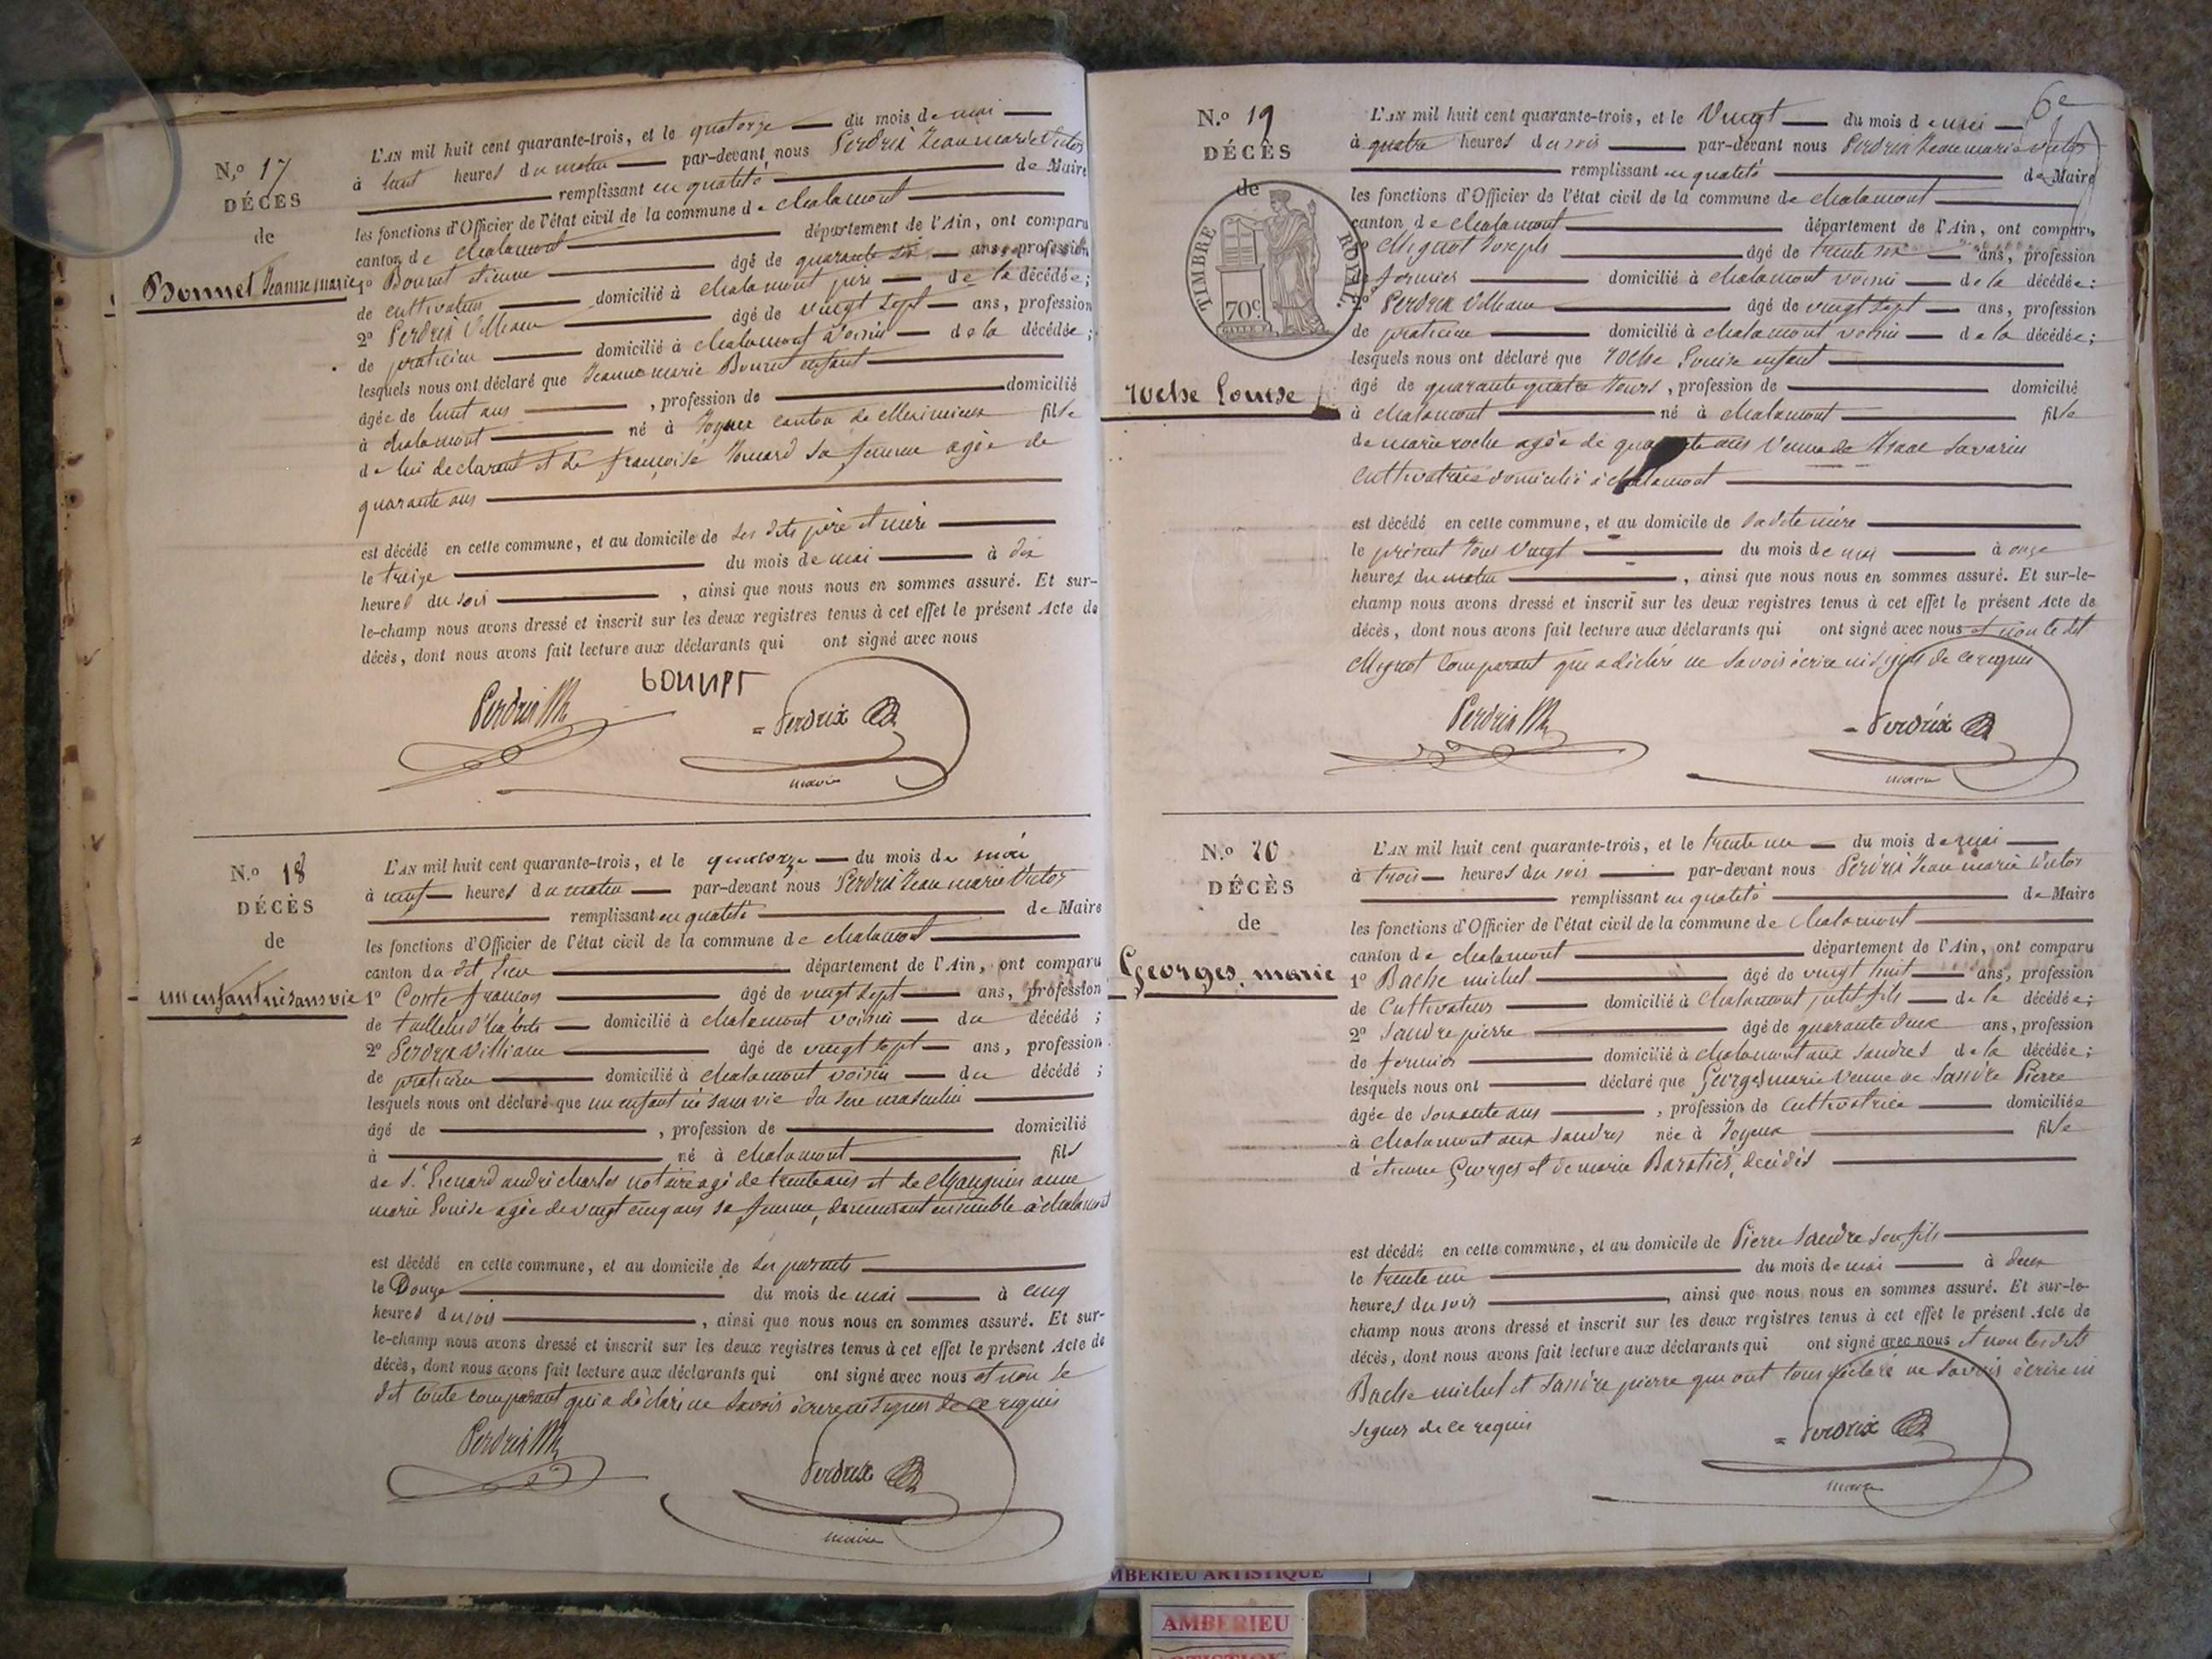 N.º 17
DÉCÈS
de
Bonnet Jeanne marie
L'AN mil huit cent quarante-trois, et le quatorze du mois de mai
à huit heures du matin par-devant nous Perdrix Jean marie Victor
remplissant en qualité de Maire
les fonctions d'Officier de l'état civil de la commune de chalamont
canton de chalamont département de l'Ain, ont comparu
1º Bonnet étienne âgé de quarante six ans, profession
de cultivateur domicilié à chalamont père de la décédée;
2º Perdrix William âgé de vingt sept ans, profession
de praticien domicilié à chalamont voisin de la décédée;
lesquels nous ont déclaré que Jeanne marie Bonnet enfant
âgée de huit ans, profession de domicilié
à chalamont né à Joyeux canton de Meximieux fille
de lui déclarant et de françoise sa femme agée de
quarante ans
est décédé en cette commune, et au domicile de ses dits père et mère
le treize du mois de mai à dix
heures du soir, ainsi que nous nous en sommes assuré. Et sur-
le-champ nous avons dressé et inscrit sur les deux registres tenus à cet effet le présent Acte de
décès, dont nous avons fait lecture aux déclarants qui ont signé avec nous
Perdrix bonnet = Perdrix
maire
N.º 18
DÉCÈS
de
un enfant né sans vie
L'AN mil huit cent quarante-trois, et le quatorze du mois de mai
à neuf heures du matin par-devant nous Perdrix Jean marie Victor
remplissant en qualité de Maire
les fonctions d'Officier de l'état civil de la commune de chalamont
canton du dit lieu département de l'Ain, ont comparu
1º Conte françois âgé de vingt sept ans, profession
de tailleur d'habits domicilié à chalamont voisin du décédé;
2º Perdrix William âgé de vingt sept ans, profession
de praticien domicilié à chalamont voisin du décédé;
lesquels nous ont déclaré que un enfant né sans vie du sexe masculin
âgé de, profession de domicilié
à né à chalamont fils
de S.r andré charles notaire agé de trente ans et de Mauguin anne
marie Louise agée de vingt cinq ans sa femme, demeurant ensemble à chalamont
est décédé en cette commune, et au domicile de ses parents
le Douze du mois de mai à cinq
heures du soir, ainsi que nous nous en sommes assuré. Et sur-
le-champ nous avons dressé et inscrit sur les deux registres tenus à cet effet le présent Acte de
décès, dont nous avons fait lecture aux déclarants qui ont signé avec nous et non le
dit Conte comparant qui a déclaré ne savoir écrire ni signer de ce requis
Perdrix Perdrix
maire
6e
N.º 19
DÉCÈS
de
TIMBRE ROYAL
70c
roche Louise
L'AN mil huit cent quarante-trois, et le Vingt du mois de mai
à quatre heures du soir par-devant nous Perdrix Jean marie Victor
remplissant en qualité de Maire
les fonctions d'Officier de l'état civil de la commune de chalamont
canton de chalamont département de l'Ain, ont comparu
1º Mignot Joseph âgé de trente six ans, profession
de fermier domicilié à chalamont voisin de la décédée:
2º Perdrix William âgé de vingt sept ans, profession
de praticien domicilié à chalamont voisin de la décédée;
lesquels nous ont déclaré que roche Louise enfant
âgé de quarante quatre jours, profession de domicilié
à chalamont né à chalamont fille
de marie roche agée de quarante ans Veuve de Isaac Savarin
cultivatrice domicilié à chalamont
est décédé en cette commune, et au domicile de sa dite mère
le présent jour vingt du mois de mai à onze
heures du matin, ainsi que nous nous en sommes assuré. Et sur-le-
champ nous avons dressé et inscrit sur les deux registres tenus à cet effet le présent Acte de
décès, dont nous avons fait lecture aux déclarants qui ont signé avec nous et non le dit
Mignot comparant qui a déclaré ne savoir écrire ni signer de ce requis
Perdrix = Perdrix
maire
N.º 20
DÉCÈS
de
Georges, marie
L'AN mil huit cent quarante-trois, et le trente un du mois de mai
à trois heures du soir par-devant nous Perdrix Jean marie Victor
remplissant en qualité de Maire
les fonctions d'Officier de l'état civil de la commune de Chalamont
canton de chalamont département de l'Ain, ont comparu
1º Bache michel âgé de vingt huit ans, profession
de Cultivateur domicilié à Chalamont petit fils de la décédée;
2º Sandre pierre âgé de quarante deux ans, profession
de fermier domicilié à chalamont aux Sandres de la décédée;
lesquels nous ont déclaré que Georges marie Veuve de Sandre Pierre
âgée de soixante ans, profession de Cultivatrice domiciliée
à chalamont aux Sandres née à Joyeux fille
d'étienne Georges et de marie Baratier, décédés
est décédé en cette commune, et au domicile de Pierre Sandre son fils
le trente un du mois de mai à deux
heures du soir, ainsi que nous nous en sommes assuré. Et sur-le-
champ nous avons dressé et inscrit sur les deux registres tenus à cet effet le présent Acte de
décès, dont nous avons fait lecture aux déclarants qui ont signé avec nous et non les dits
Bache michel et Sandre pierre qui ont tous déclaré ne savoir écrire ni
signer de ce requis
= Perdrix
maire
AMBERIEU ARTISTIQUE
AMBERIEU